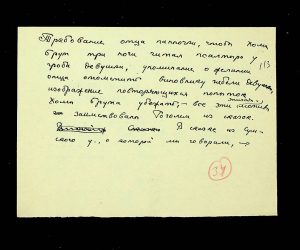 Требование отца панночки, чтобы Хома
Брут три ночи читал псалтырь у
гроба девушки, упоминание о желании
отца отомстить виновнику гибели девушки,
изображение повторяющихся попыток
Хомы Брута убежать, – все эти мотивы
заимствованы Гоголем из сказок.
В сказке из
о которой мы говорили,
34